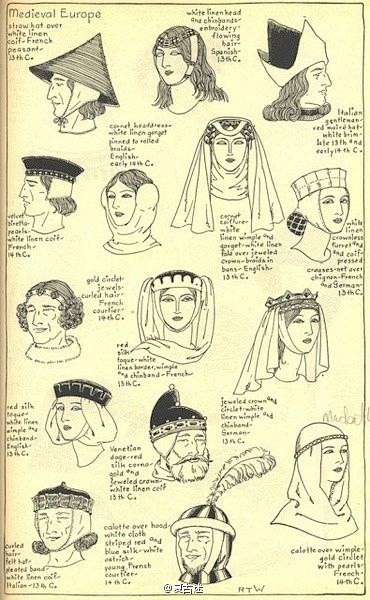 Medieval Europe
straw hat over
white linen
coif-French
peasant-
13th C.
white linen head
and chinbands-
embroidery-
flowing
hair-
Spanish-
13th C.
Italian
gentleman-
red moiré hat-
white brim-
late 13th and
early 14th C.
cornet headdress-
white linen gorget
pinned to rolled
braids-
English-
early 14th C.
velvet
biretta-
pearls-
white linen coif-
French-
14th C.
cornet
coiffure-
white
linen wimple and
gorget-white linen
fold over jeweled
crown-braids in
buns-English-
13th C.
white
linen
crownless
turret and
and coif-
pressed
creases-net over
chignon-French
and German-
13th C.
gold circlet-
jewels-
curled hair-
French
courtier-
14th C.
red
silk
toque-white
linen border, wimple
and chinband-French
13th C.
red silk
toque-white
linen wimple
and
chinband-
English-
13th C.
jeweled crown and
circlet-white
linen wimple and
chinband-
German-
13th C.
Venetian
doge-red
silk corno-
gold and
jeweled crown-
white linen coif
13th C.
curled
hair-
felt hat-
pleated band-
white linen coif
Italian-13th C.
calotte over hood-
white cloth
striped red and
blue silk-white
ostrich-
young French
courtier-
14th C.
calotte over wimple-
gold circlet
with pearls-
French-
14th C.
RTW